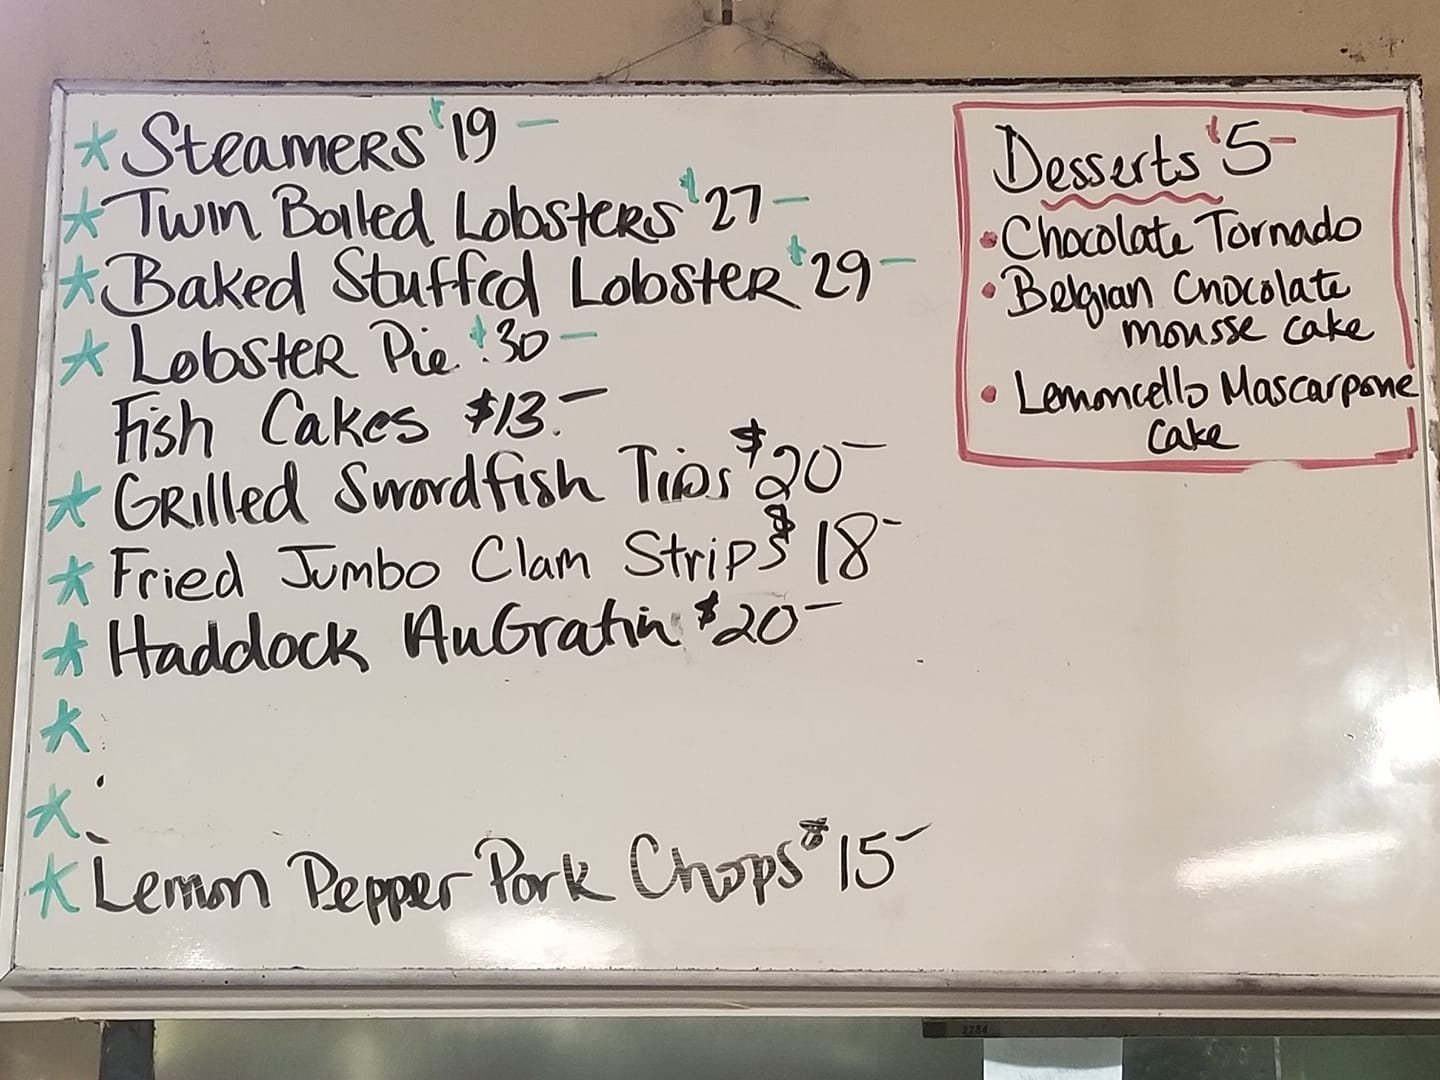 * Steamers $19 -
* Twin Boiled Lobsters $27 -
* Baked Stuffed Lobster $29 -
* Lobster Pie $30 -
Fish Cakes $13.-
* Grilled Swordfish Tips $20 -
* Fried Jumbo Clam Strips $18 -
* Haddock AuGratin $20 -
*
*
* Lemon Pepper Pork Chops $15 -
Desserts $5 -
• Chocolate Tornado
• Belgian Chocolate
mousse cake
• Lemoncello Mascarpone
Cake
2284